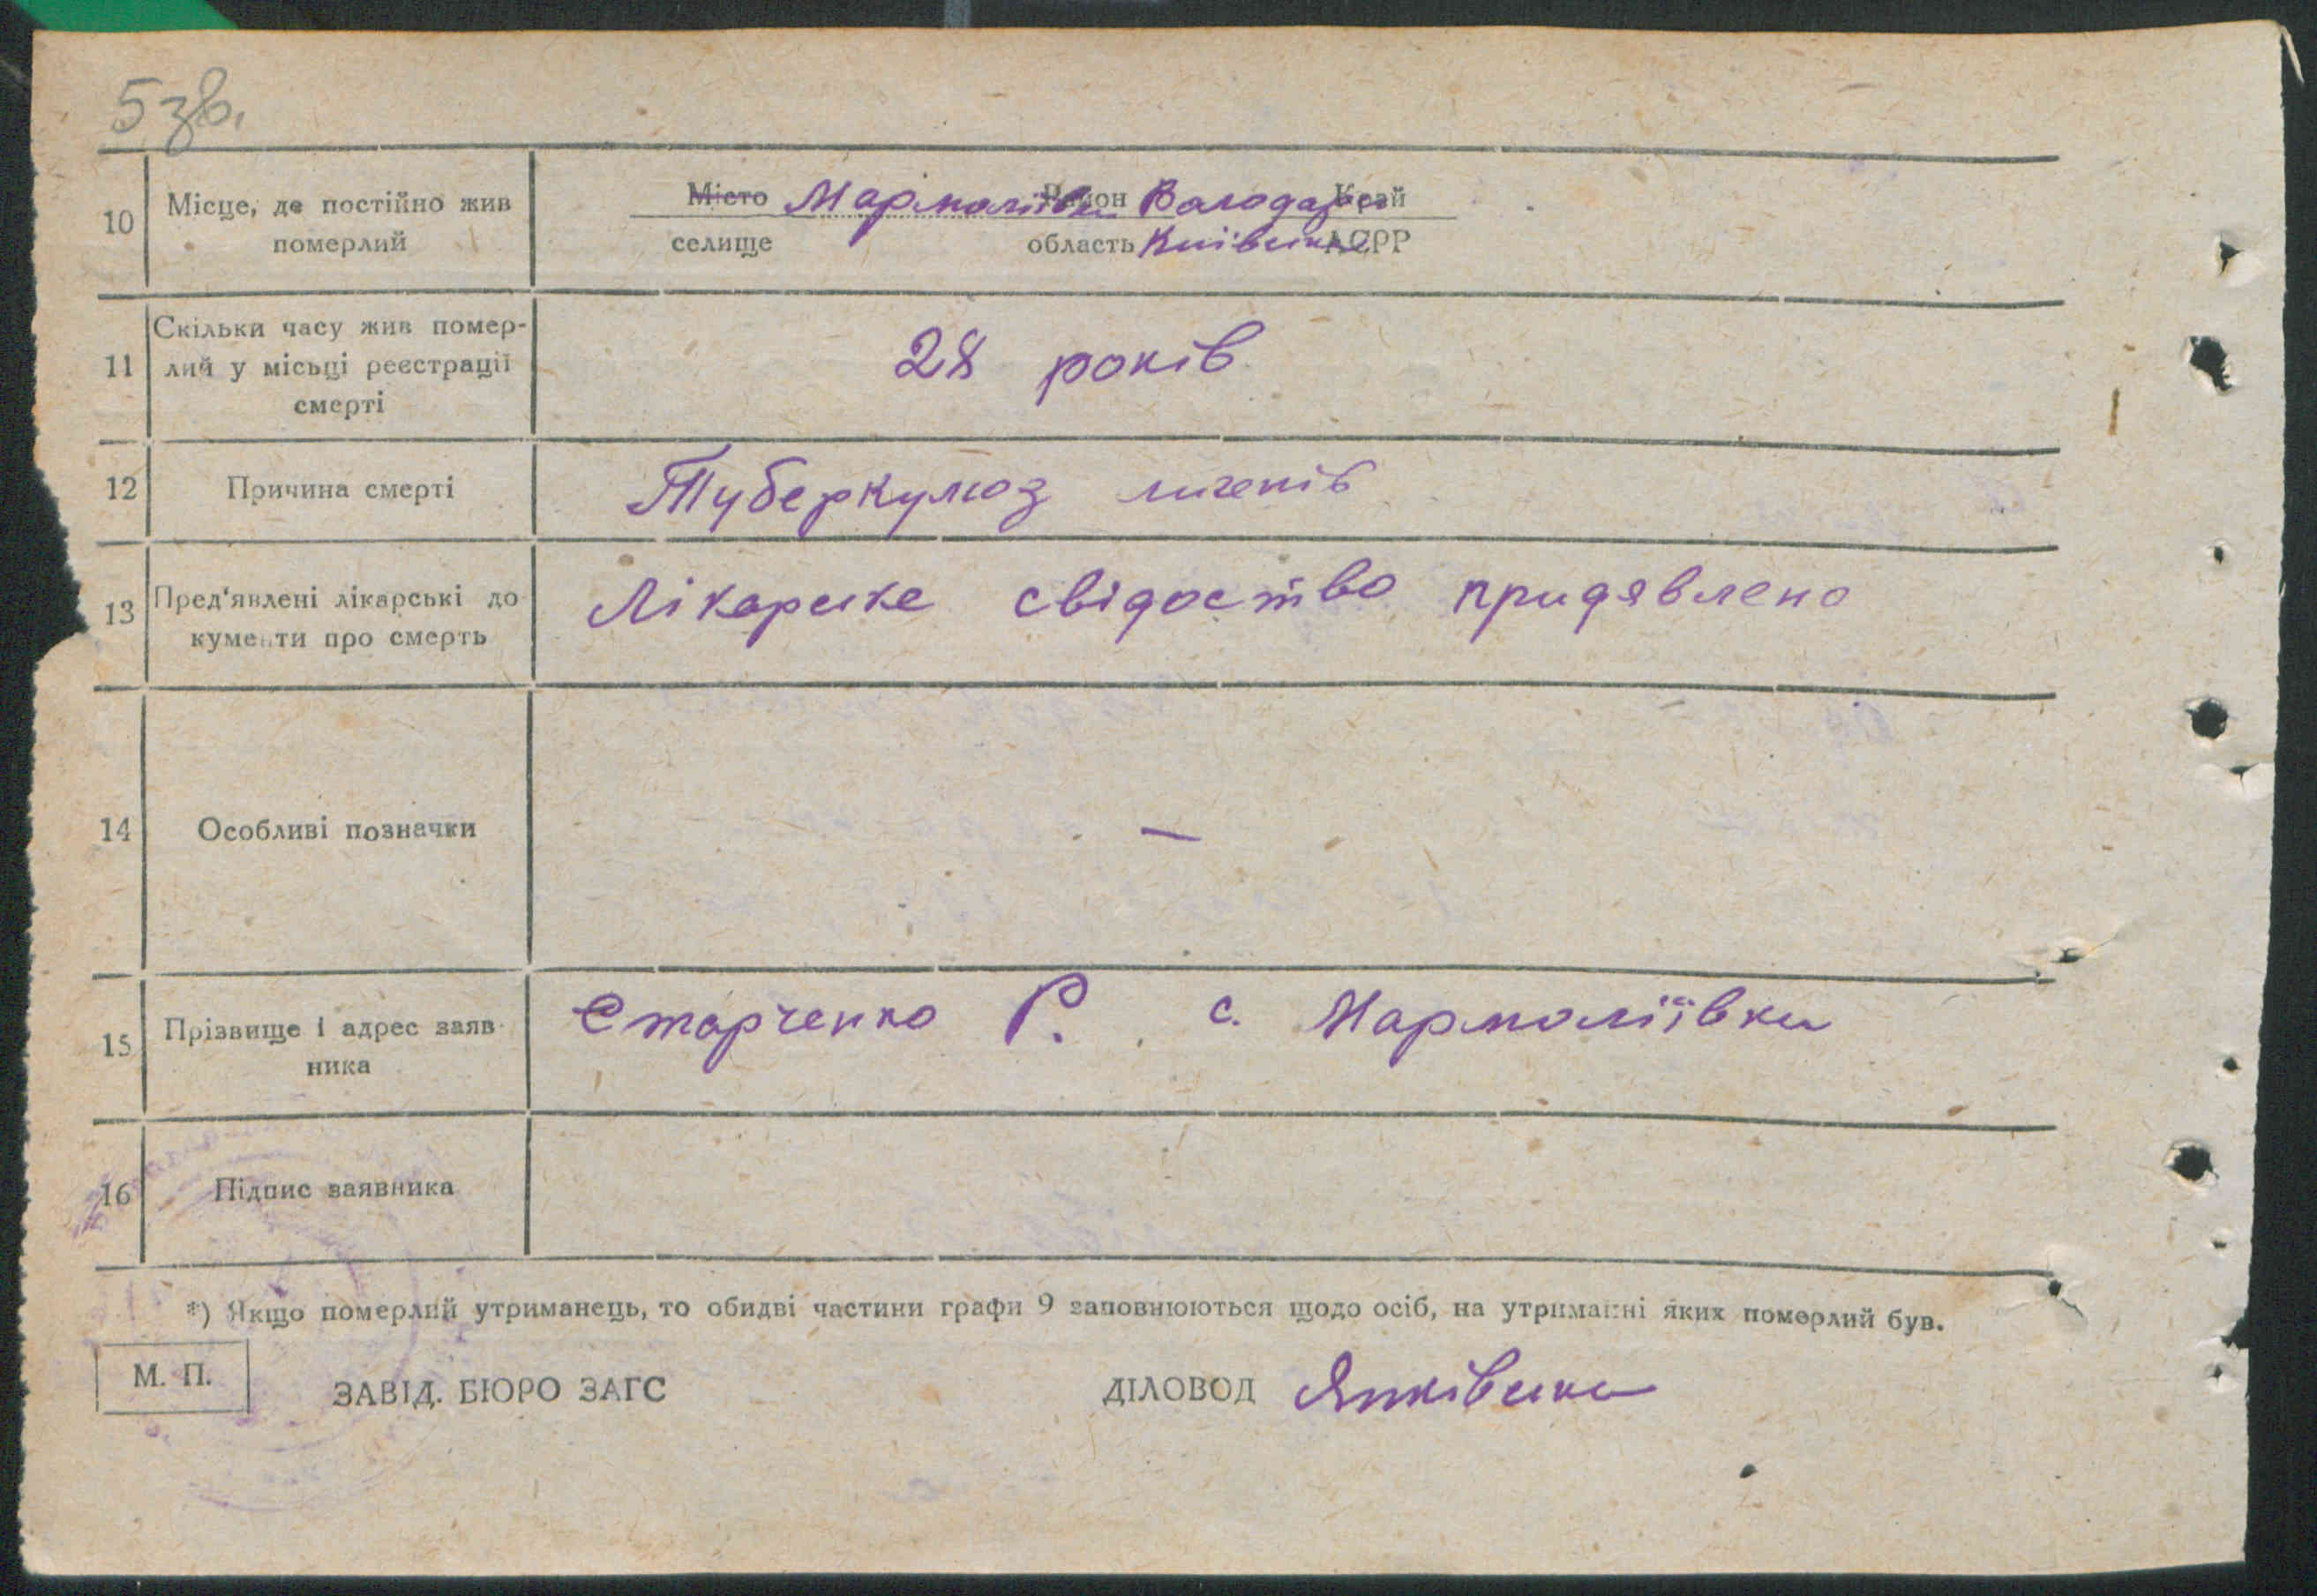 5 зв.
10 Місце, де постійно жив померлий
Місто Мармоліївка Район Володарс Край
селище область Київська АСРР
11 Скільки часу жив помер-
лий у місьці реєстрації
смерті
28 років
12 Причина смерті
Туберкульоз лигенів
13 Пред'явлені лікарські до
кументи про смерть
Лікарске свідоство придявлено
14 Особливі позначки
—
15 Прізвище і адрес заяв
ника
Старченко Р. с. Мармоліївка
16 Підпис заявника
*) Якщо померлий утриманець, то обидві частини графи 9 заповнюються щодо осіб, на утриманні яких померлий був.
М. П.
ЗАВІД. БЮРО ЗАГС ДІЛОВОД